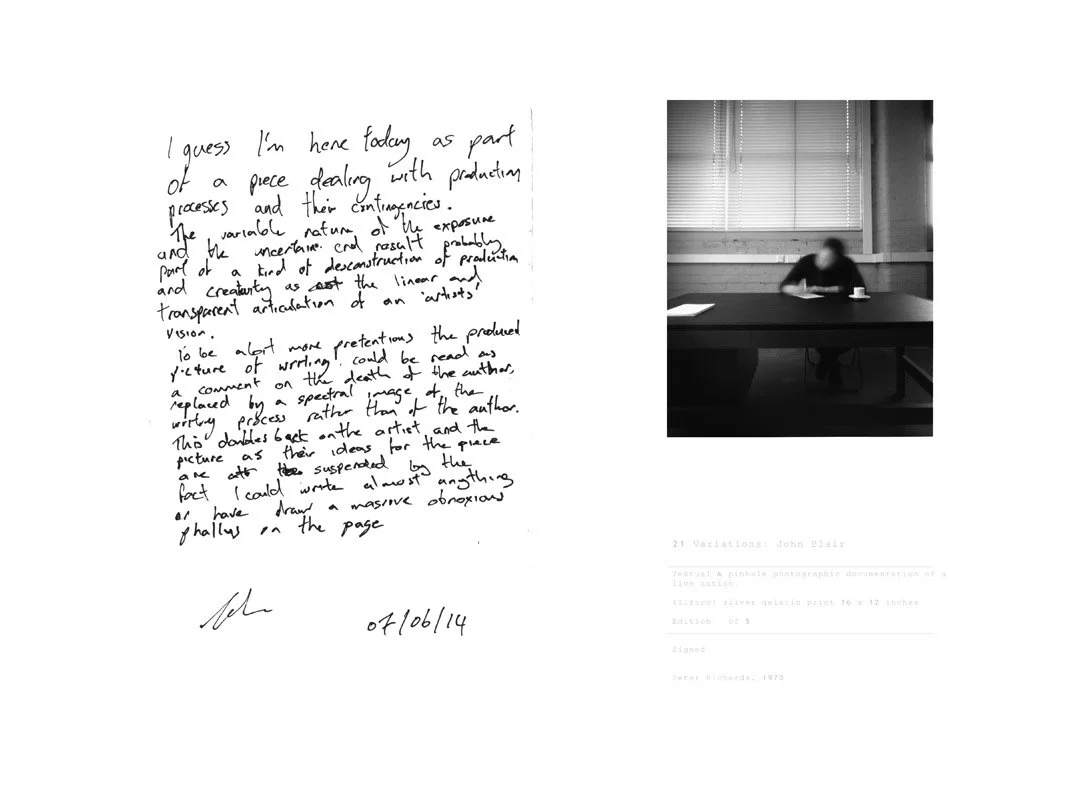 I guess I'm here today as part
of a piece dealing with production
processes and their contingencies.
The variable nature of the exposure
and the uncertain end result probably
part of a kind of desconstruction of production
and creativity as the linear and
transparent articulation of an 'artists'
vision.
To be alort more pretentions the produced
picture of writing could be read as
a comment on the death of the author,
replaced by a spectral image of the
writing process rather than of the author.
This doubles back on the artist and the
picture as their ideas for the piece
are suspended by the
fact I could write almost anything
or have draw a massive obnoxious
phallus on the page
07/06/14
21 Variations: John Blair
Textual & pinhole photographic documentation of a
live action.
(Ilford) silver gelatin print 16 x 12 inches
Edition of 5
Signed
Peter Richards, 1970